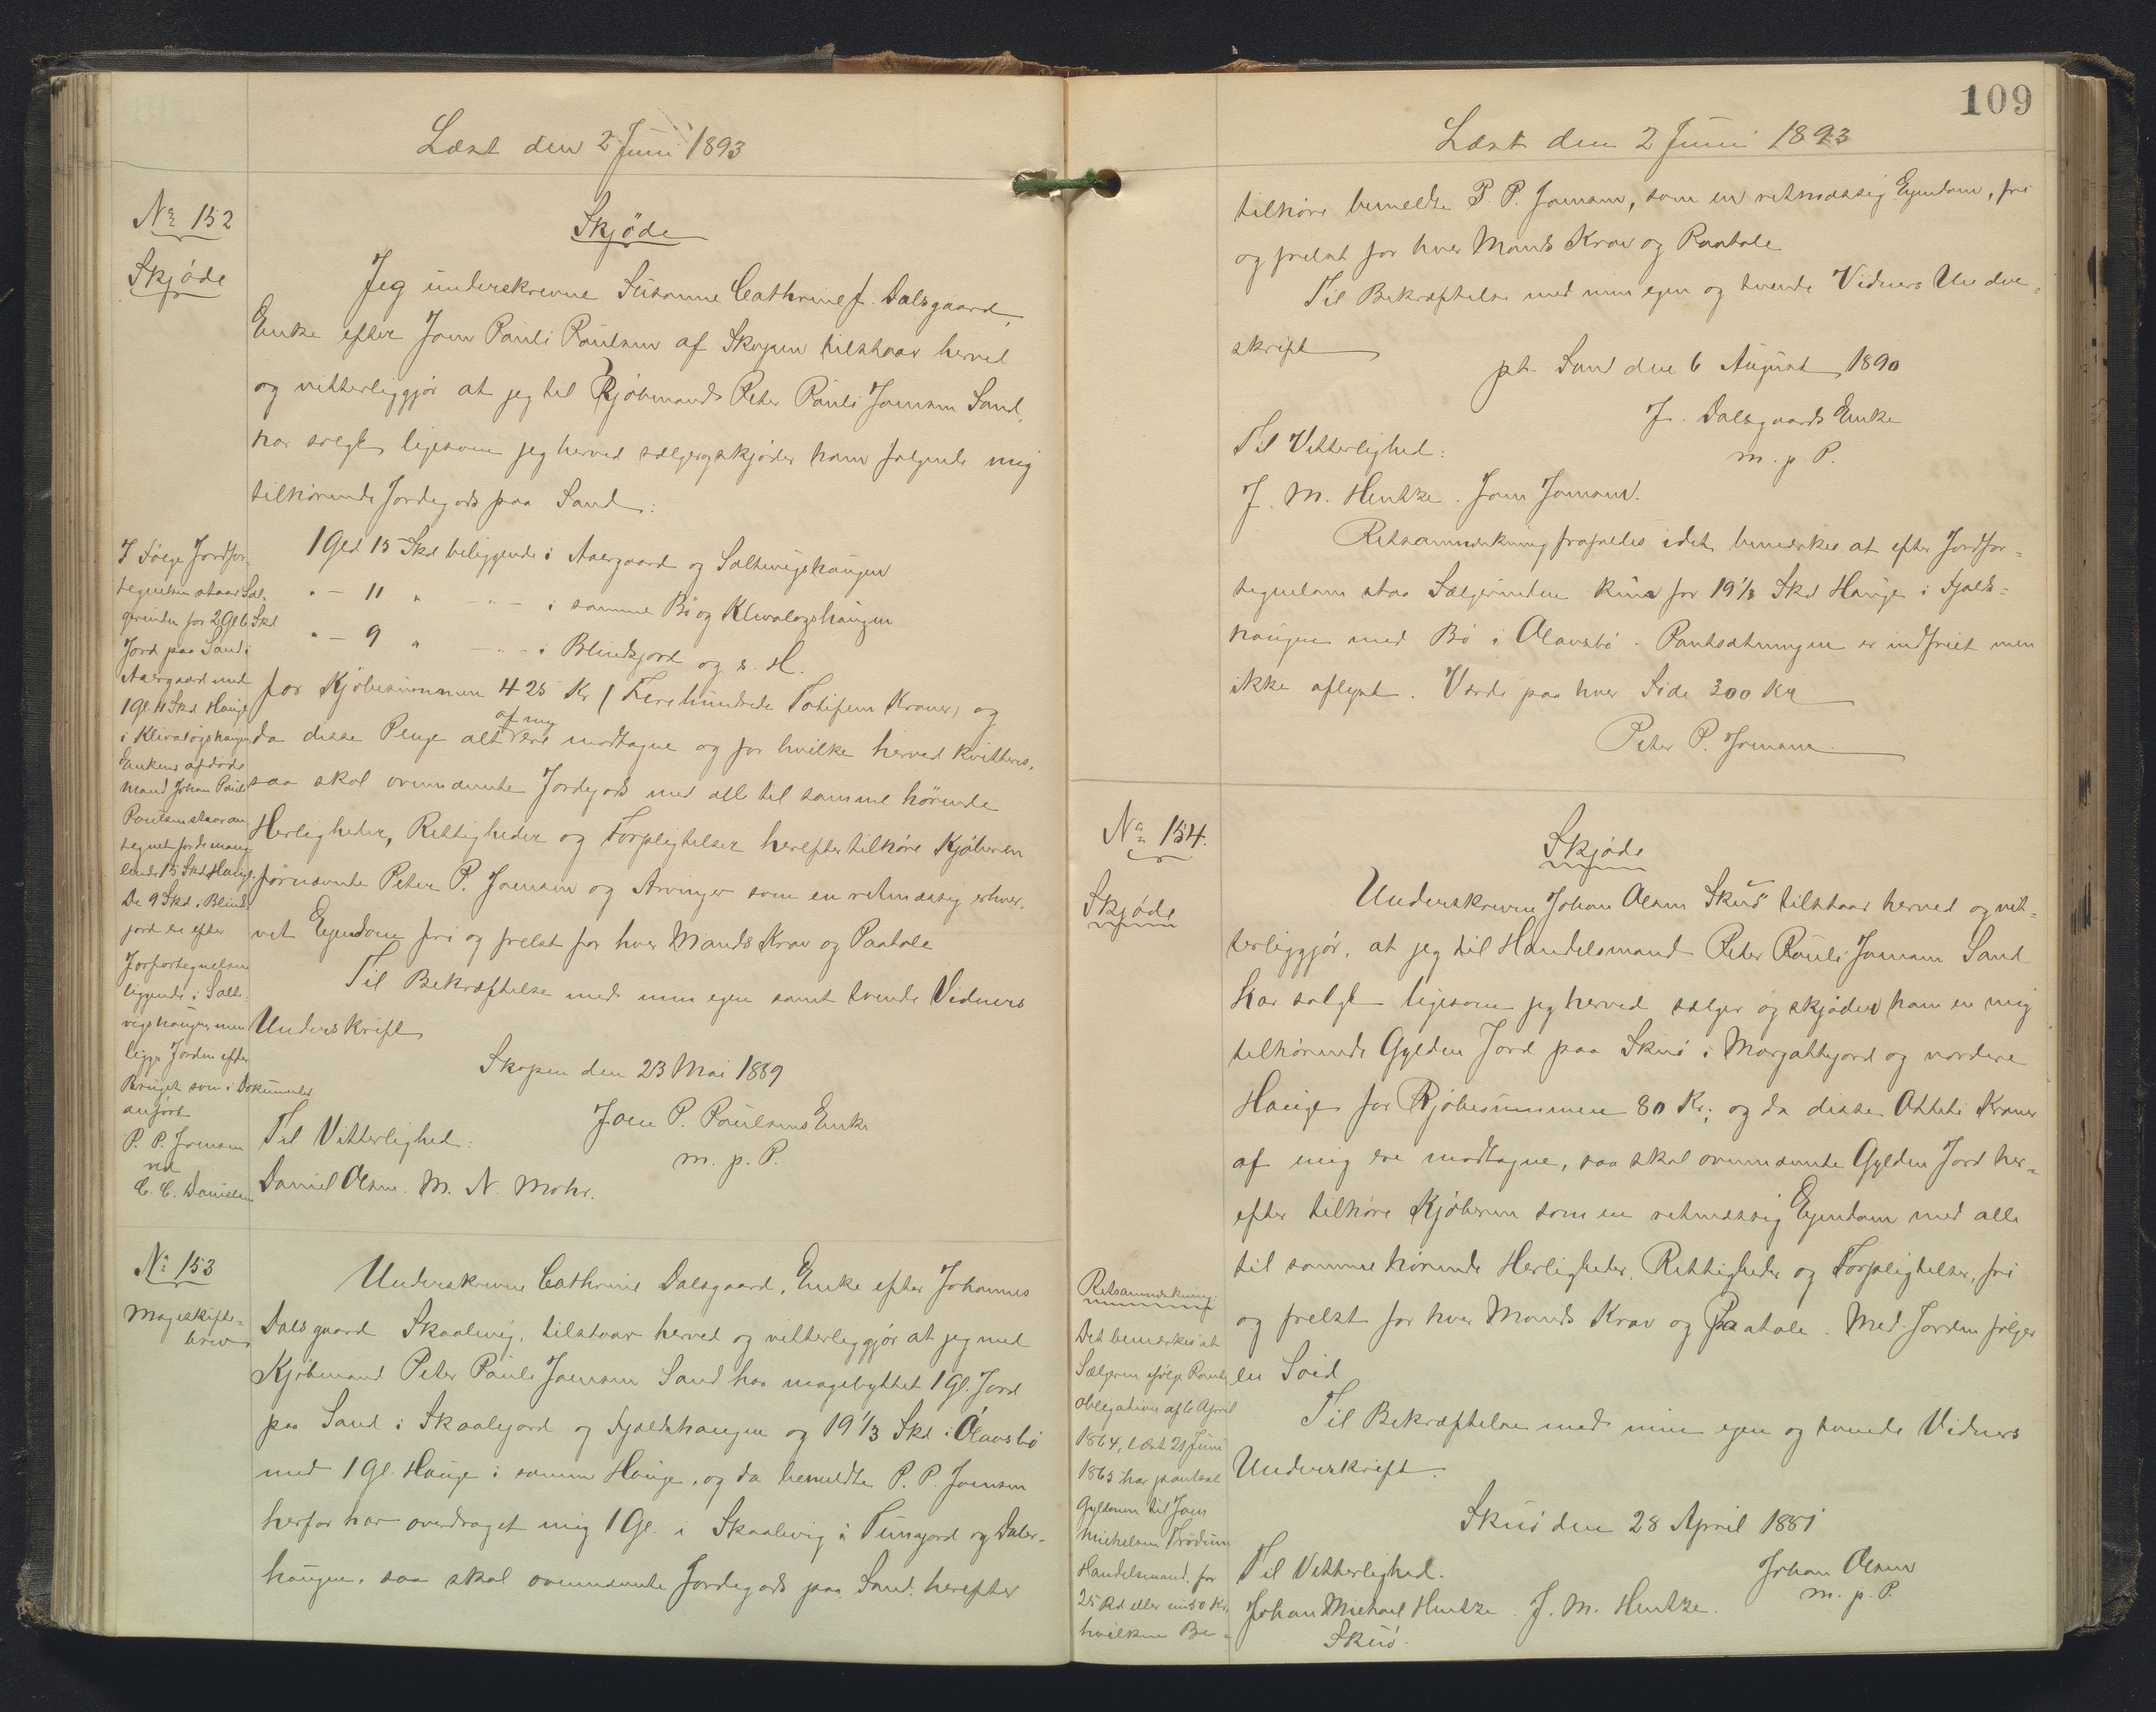 Læst den 2 Juni 1893
No 152
Skjøde
Skjøde
Jeg underskrevne Susanne Cathrine f. Dalsgaard,
Enke efter Joen Pauli Poulsen af Skopen tilstaar herved
og vitterliggjør at jeg til Kjøbmand Peter Pauli Joensen Sand,
har solgt ligesom jeg herved sælger og skjøder ham følgende mig
tilhørende Jordegods paa Sand:
1 Gld 15 Skd beliggende i Aaergaard og Saltvigshaugen
" - 11 " - " - i samme Bø og Klivaløgshaugen
" - 9 " - " - i Blindsjord og s. H.
for Kjøbesummen 425 Kr (Firehundrede Totifem Kroner) og
da disse Penge alt ere af mig modtagne og for hvilke herved kvitteres,
saa skal ovennævnte Jordegods med alle til samme hørende
Herligheder, Rettigheder og Forpligtelser herefter tilhøre Kjøberen
førnævnte Peter P. Joensen og Arvinger som en retmæssig erhver-
vet Ejendom fri og frelst for hver Mands Krav og Paatale
Til Bekræftelse med min egen samt tvende Vidners
Underskrift
Skopen den 23 Mai 1889
Joen P. Poulsens Enke
m. p. P.
Til Vitterlighed:
Daniel Olsen. M. N. Mohr.
I Følge Jordfor-
tegnelsen staar Sæl-
gerinden for 2 Gl 6 Skd
Jord paa Sand i
Aaergaard med
1 Gl. 11 Skd Hauge
i Klivaløgshaugen
Enkens afdøde
Mand Johan Pauli
Poulsen staar an
tegnet for de mang
lende 15 Skd Hauge.
De 9 Skd i Blind-
jord er efter
Jorfortegnelsen
liggende i Salt-
vigshaugen, men
ligge Jorden efter
Bruget som i Dokumentet
anført
P. P. Joensen
ved
C. C. Danielsen
No 153
Mageskifte-
brev
Underskrevne Cathrine Dalsgaard, Enke efter Johannes
Dalsgaard Skaalevig, tilstaar herved og vitterliggjør at jeg med
Kjøbmand Peter Pauli Joensen Sand har magebyttet 1 Gl. Jord
paa Sand i Skaalejord og Fjaldshaugen og 19 1/3 Skd i Ólavsbø
med 1 Gl. Hauge i samme Hauge, og da bemeldte P. P. Joensen
herfor har overdraget mig 1 Gl. i Skaalevig i Tunsjord og Daler-
haugen, saa skal ovennævnte Jordegods paa Sand herefter
109
Læst den 2 Juni 1893
tilhøre bemeldte P. P. Joensen, som en retmæssig Ejendom, fri
og frelst for hver Mands Krav og Paatale
Til Bekræftelse med min egen og tvende Vidners Under-
skrift
pt. Sand den 6 August 1890
J. Dalsgaards Enke
m. p. P.
Til Vitterlighed:
J. M. Hentze. Joen Joensen.
Retsanmærkning frafaldes idet bemærkes at efter Jordfor-
tegnelsen staa Sælgerinden kun for 19 1/3 Skd Hauge i Fjalds-
haugen med Bø i Olavsbø. Pantsætningen er indfriet men
ikke aflyst. Værdi paa hver Side 300 Kr
Peter P. Joensen
No 154.
Skjøde
Skjøde
Underskrevne Johan Olsen Skuø tilstaar herved og vit-
terliggjør, at jeg til Handelsmand Peter Pauli Joensen Sand
har solgt ligesom jeg herved sælger og skjøder ham en mig
tilhørende Gylden Jord paa Skuø i Morgattejord og nordere
Hauge for Kjøbesummen 80 Kr; og da disse Otteti Kroner
af mig ere modtagne, saa skal ovennævnte Gylden Jord her-
efter tilhøre Kjøberen som en retmæssig Ejendom med alle
til samme hørende Herligheder, Rettigheder og Forpligtelser, fri
og frelst for hver Mands Krav og Paatale. Med Jorden følger
en Soid
Til Bekræftelse med min egen og tvende Vidners
Underskrift.
Skuø den 28 April 1881
Johan Olsen
m. p. P.
Til Vitterlighed.
Johan Michael Hentze J. M. Hentze.
Skuø.
Retsanmærkning:
Det bemærkes at
Sælgeren ifølge Pante
obligation af 6 April
1864, læst 21 Juni
1865 har pantsat
Gyldenen til Joen
Michelsen Trødum
Handelsmand, for
25 Rd eller nu 50 Kr.
hvilken Be-